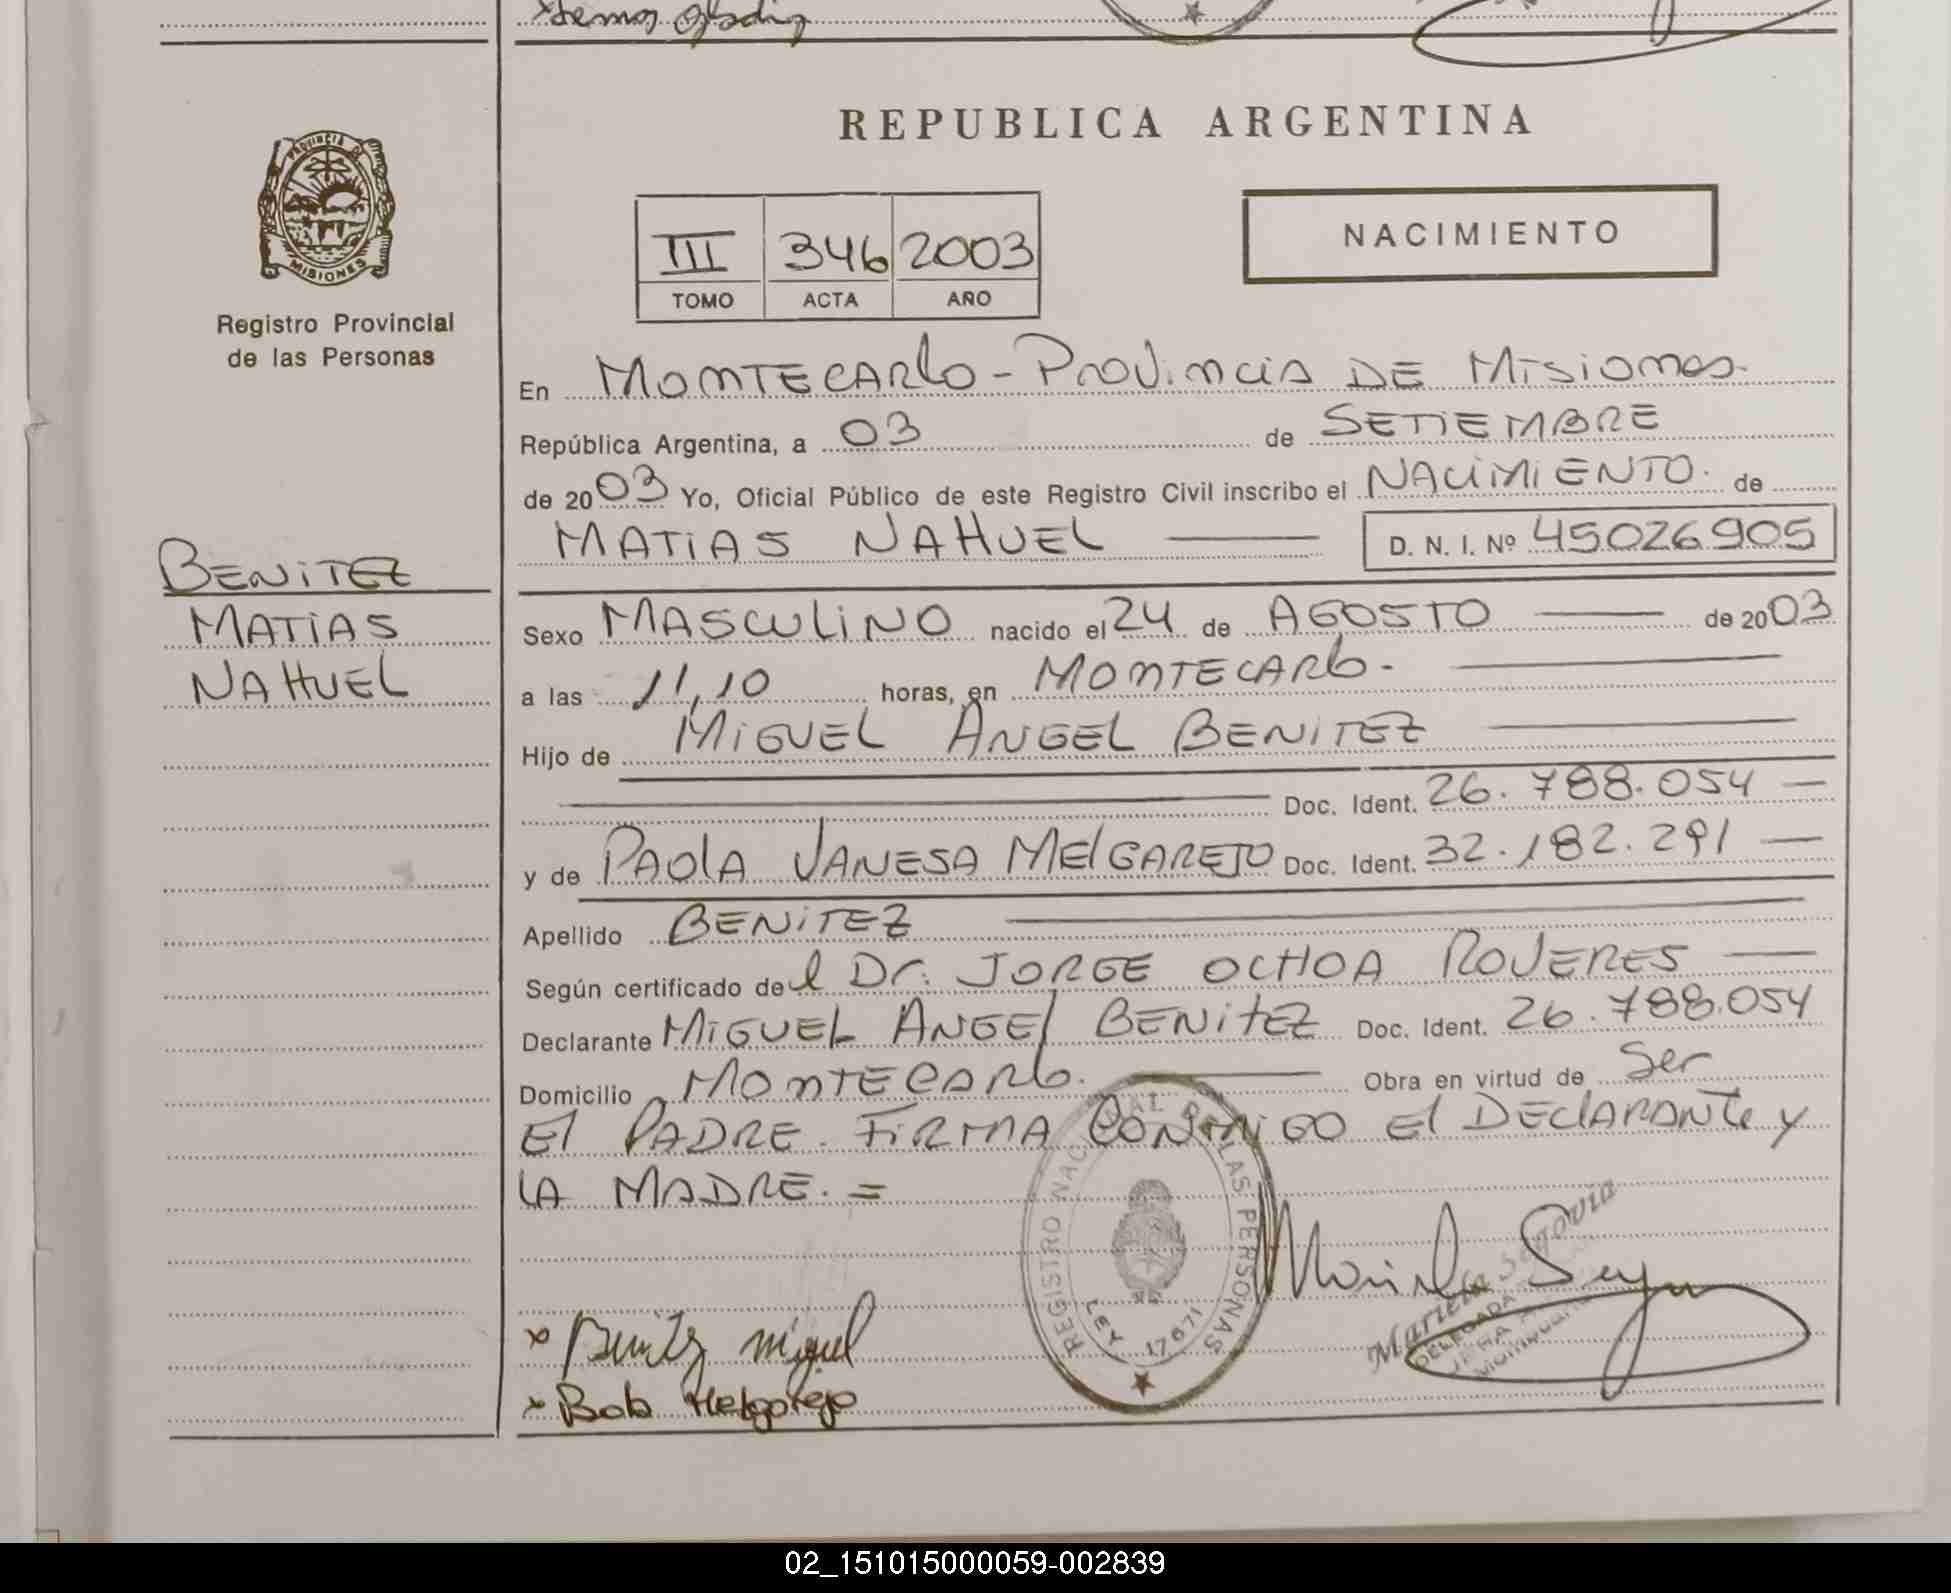 REPUBLICA ARGENTINA
PROVINCIA DE
MISIONES
Registro Provincial
de las Personas
III 346 2003
TOMO ACTA AÑO
NACIMIENTO
En MONTECARLO - PROVINCIA DE MISIONES.
República Argentina, a 03 de SETIEMBRE
de 2003 Yo, Oficial Público de este Registro Civil inscribo el NACIMIENTO. de
MATIAS NAHUEL D. N. I. Nº 45026905
BENITEZ
MATIAS
NAHUEL
Sexo MASCULINO nacido el 24 de AGOSTO de 2003
a las 11,10 horas, en MONTECARLO.
Hijo de MIGUEL ANGEL BENITEZ
Doc. Ident. 26.788.054
y de PAOLA VANESA MELGAREJO Doc. Ident. 32.182.291
Apellido BENITEZ
Según certificado del Dr. JORGE OCHOA ROVERES
Declarante MIGUEL ANGEL BENITEZ Doc. Ident. 26.788.054
Domicilio MONTECARLO. Obra en virtud de Ser
El PADRE. FIRMA CONMIGO El DECLARANTE y
LA MADRE. =
REGISTRO NACIONAL DE LAS PERSONAS
LEY 17671
Mariela Segovia
DELEGADA
x Benitez Miguel
x Melgarejo
02_151015000059-002839